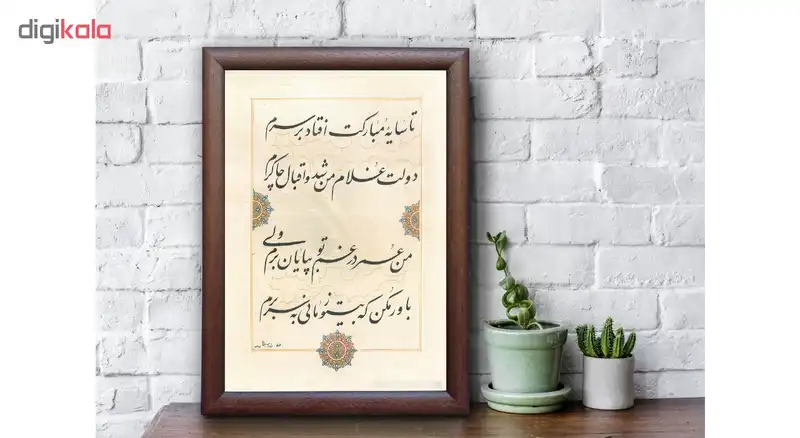 digikala
تا سایهٔ مبارکت افتاد بر سرم
دولت غلام من شد و اقبال چاکرم
من عمر در غم تو بپایان برم ولی
باور مکن که بیتو زمانی بسر برم